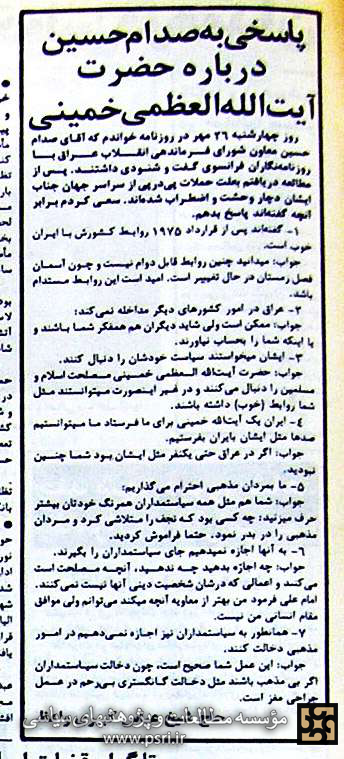 پاسخی به صدام حسین
درباره حضرت
آیت‌الله‌العظمی خمینی
روز چهارشنبه ۲۶ مهر در روزنامه خواندم که آقای صدام
حسین معاون شورای فرماندهی انقلاب عراق با
روزنامه‌نگاران فرانسوی گفت و شنودی داشتند. پس از
مطالعه دریافتم بعلت حملات پی‌درپی از سراسر جهان جناب
ایشان دچار وحشت و اضطراب شده‌اند. سعی کردم برابر
آنچه گفته‌اند پاسخ بدهم.
۱- گفته‌اند پس از قرارداد ۱۹۷۵ روابط کشورش با ایران
خوب است.
جواب: میدانید چنین روابط قابل دوام نیست و چون آسمان
فصل زمستان در حال تغییر است. امید است این روابط مستدام
باشد.
۲- عراق در امور کشورهای دیگر مداخله نمی‌کند:
جواب: ممکن است ولی شاید دیگران هم همفکر شما باشند و
یا اینکه شما را بحساب نیاورند.
۳- ایشان میخواستند سیاست خودشان را دنبال کنند.
جواب: حضرت آیت‌الله العظمی خمینی مصلحت اسلام و
مسلمین را دنبال می‌کنند و در غیر اینصورت میتوانستند مثل
شما روابط (خوب) داشته باشند.
۴- ایران یک آیت‌الله خمینی برای ما فرستاد ما میتوانستیم
صدها مثل ایشان بایران بفرستیم.
جواب: اگر در عراق حتی یکنفر مثل ایشان بود شما چنین
نبودید.
۵- ما بمردان مذهبی احترام می‌گذاریم:
جواب: شما هم مثل همه سیاستمداران همرنگ خودتان بیشتر
حرف میزنید: چه کسی بود که نجف را متلاشی کرد و مردان
مذهبی را در بدر نمود. حتما فراموش کردید.
۶- به آنها اجازه نمیدهیم جای سیاستمداران را بگیرند.
جواب: چه اجازه بدهید چه ندهید، آنچه مصلحت است
می‌کنند و اعمالی که درشان شخصیت دینی آنها نیست نمی‌کنند.
امام علی فرمود من بهتر از معاویه آنچه میکند می‌توانم ولی موافق
مقام انسانی من نیست.
۷- همانطور به سیاستمداران نیز اجازه نمی‌دهیم در امور
مذهبی دخالت کنند.
جواب: این عمل شما صحیح است، چون دخالت سیاستمداران
اگر بی مذهب باشند مثل دخالت گانگستری بی‌رحم در عمل
جراحی مغز است.
مؤسسه مطالعات و پژوهشهای سیاسی
www.psri.ir